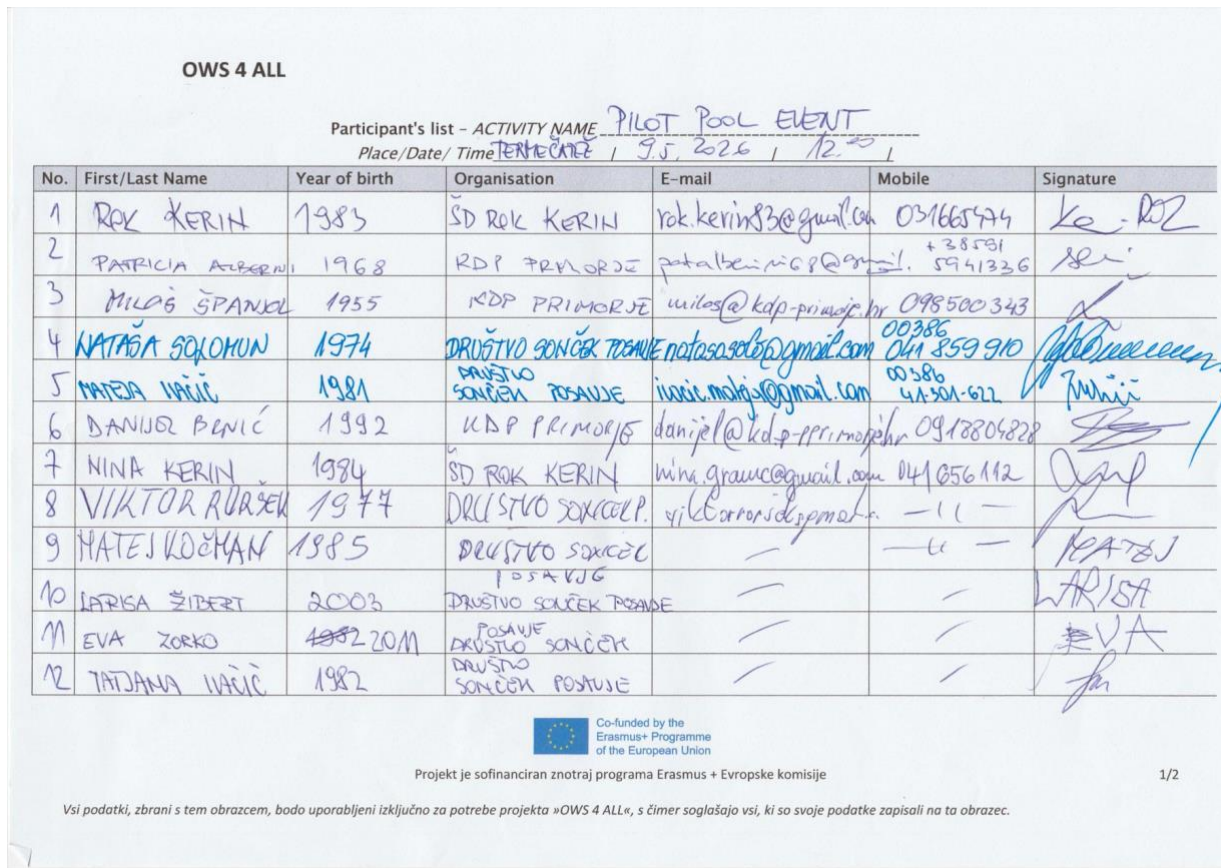 OWS 4 ALL
Participant's list – ACTIVITY NAME PILOT POOL EVENT
Place/Date/ Time TERME ČATEŽ / 9.5. 2026 / 12.00 /
No. First/Last Name Year of birth Organisation E-mail Mobile Signature
1 ROK KERIN 1983 ŠD ROK KERIN rok.kerin83@gmail.com 031665474
2 PATRICIA 1968 KDP PRIMORJE +38591 5941336
3 MILOŠ ŠPANJOL 1955 KDP PRIMORJE milos@kdp-primorje.hr 098500343
4 NATAŠA SOLOMUN 1974 DRUŠTVO SONČEK POSAVJE natasasolo@gmail.com 00386 041 859 910
5 MATEJA IVAČIČ 1981 DRUŠTVO SONČEK POSAVJE 00386 41-301-622
6 DANIJEL BRNIĆ 1992 KDP PRIMORJE danijel@kdp-pprimorje.hr 0918804828
7 NINA KERIN 1984 ŠD ROK KERIN 041656112
8 VIKTOR 1977 DRUŠTVO SONČEK P. —11—
9 MATEJ KOČMAN 1985 DRUŠTVO SONČEK POSAVJE — —11— MATEJ
10 LARISA ŽIBERT 2003 DRUŠTVO SONČEK POSAVJE — — LARISA
11 EVA ZORKO 1982 2011 POSAVJE DRUŠTVO SONČEK — — EVA
12 TATJANA IVAČIČ 1982 DRUŠTVO SONČEK POSAVJE — —
Co-funded by the
Erasmus+ Programme
of the European Union
Projekt je sofinanciran znotraj programa Erasmus + Evropske komisije 1/2
Vsi podatki, zbrani s tem obrazcem, bodo uporabljeni izključno za potrebe projekta »OWS 4 ALL«, s čimer soglašajo vsi, ki so svoje podatke zapisali na ta obrazec.